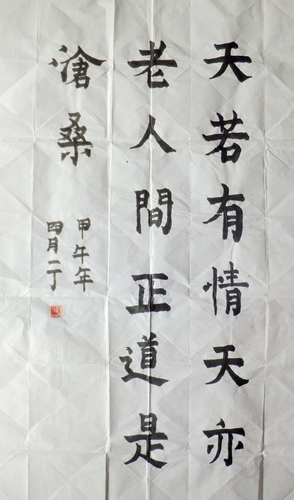 天若有情天亦
老人間正道是
滄桑
甲午年
四月一丁